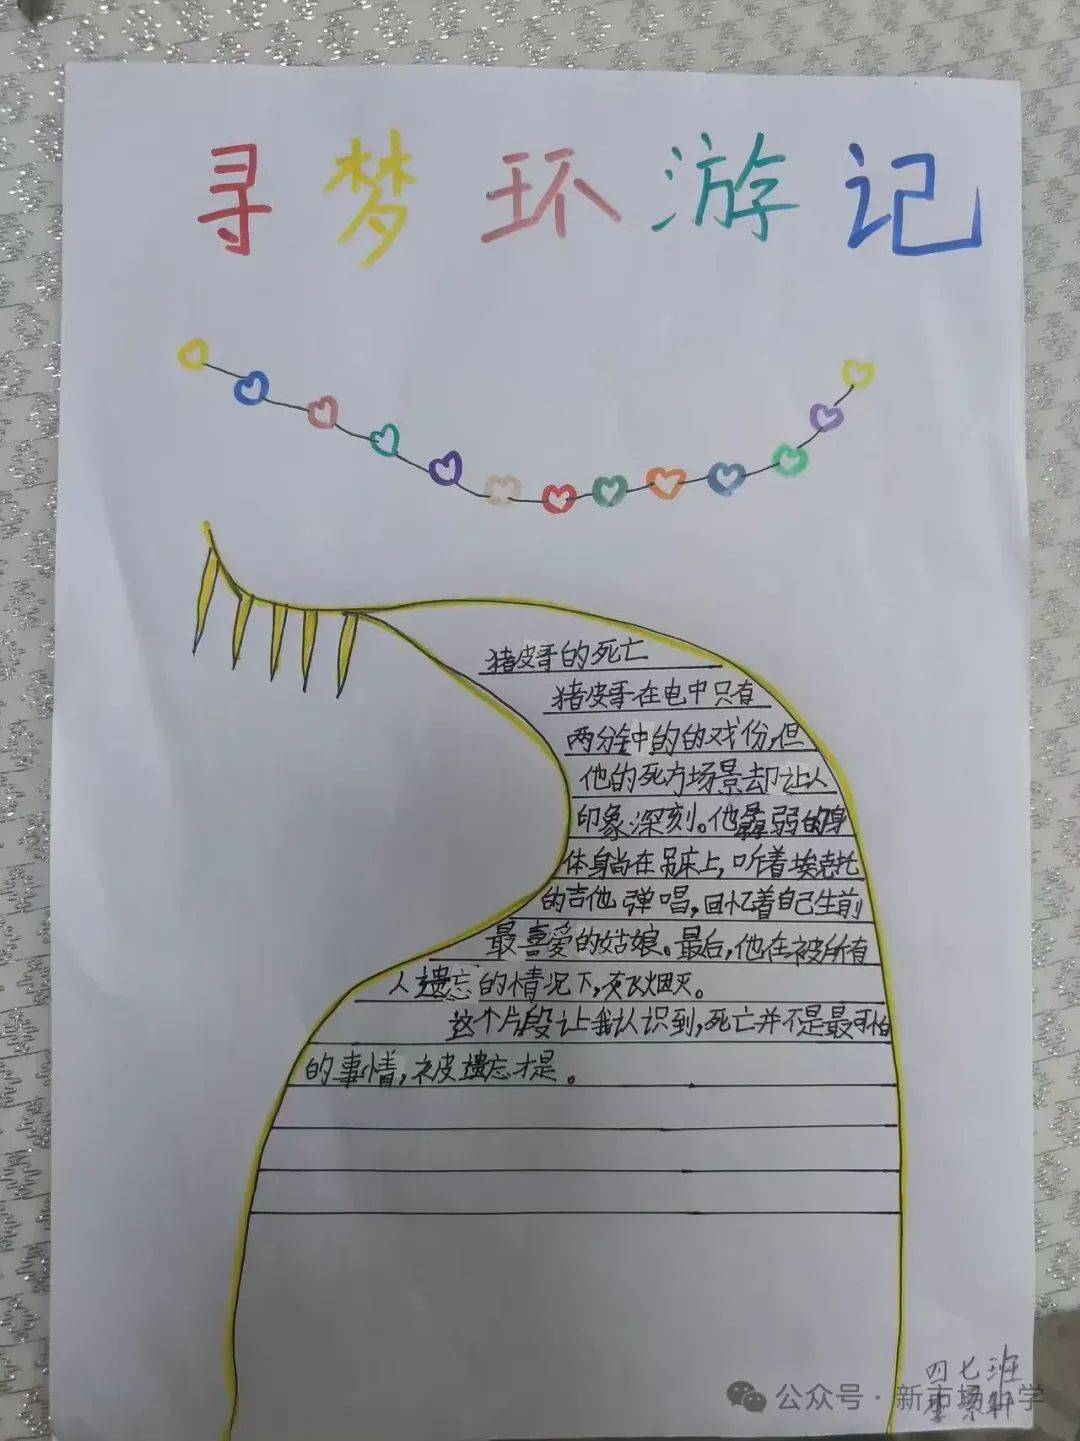 寻梦环游记
猪皮哥的死亡
猪皮哥在电中只有
两分钟的的戏份,但
他的死亡场景却让人
印象深刻。他孱弱的身
体身尚在吊床上,听着埃克托
的吉他弹唱,回忆着自己生前
最喜爱的姑娘。最后,他在被所有
人遗忘的情况下,灰飞烟灭。
这个片段让我认识到,死亡并不是最可怕
的事情,被遗忘才是。
四七班
李
公众号·新市场小学